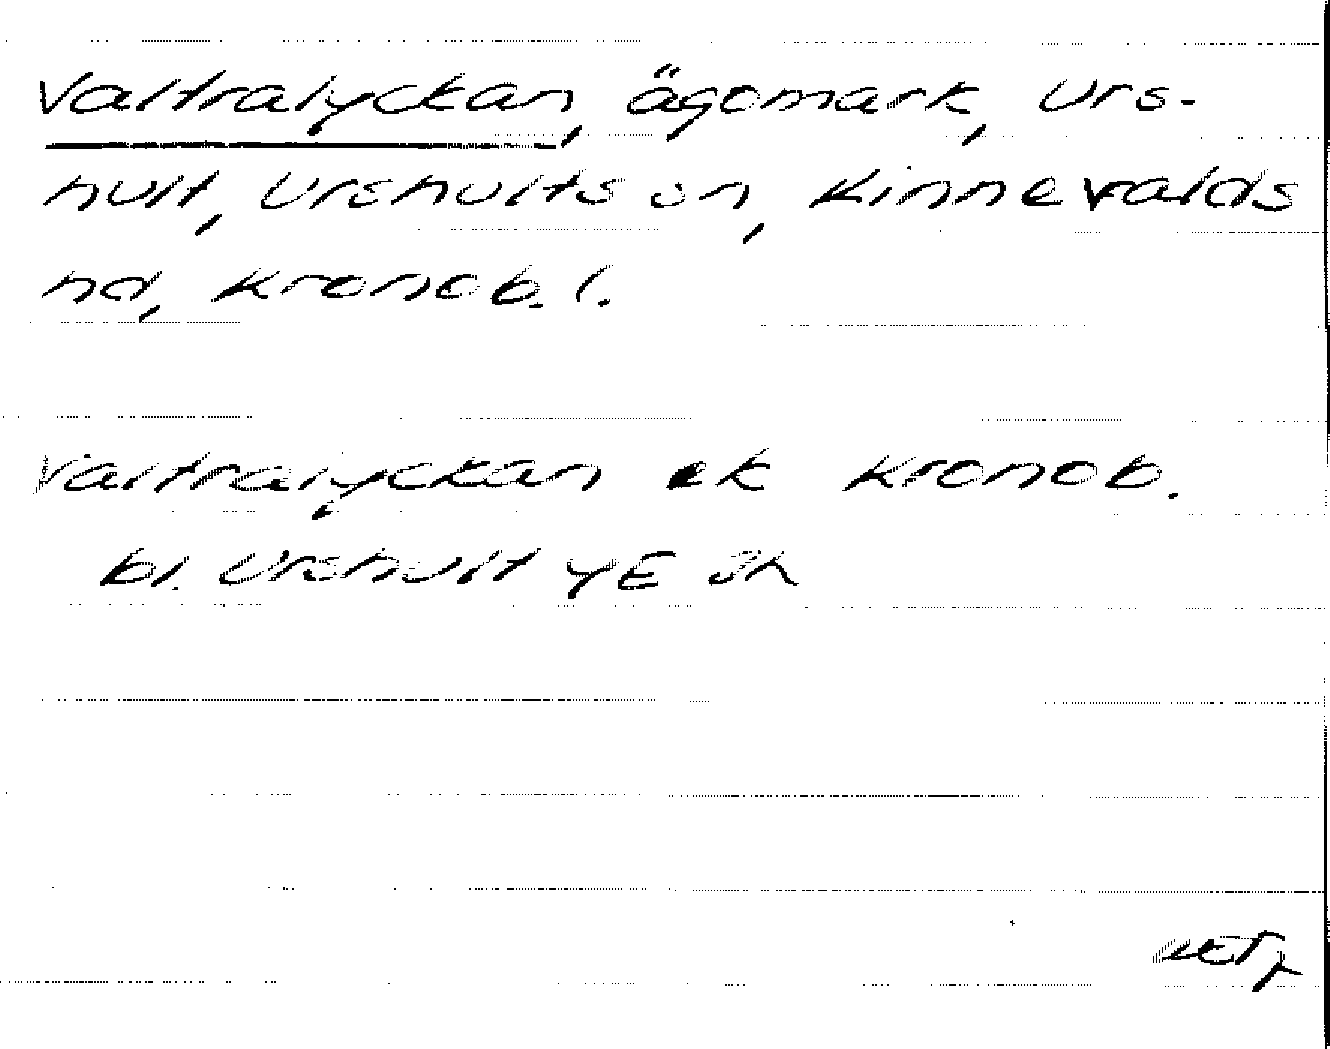 Valtralyckan, ägomark, Urs-
hult, Urshults sn, Kinnevalds
hd, Kronob. l.
Valtralyckan ek Kronob.
bl. Urshult YE Sh